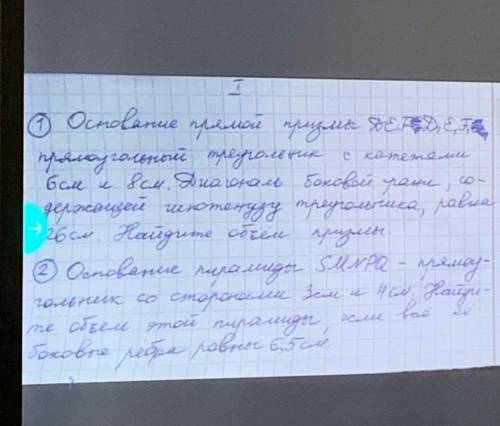 I
① Основание прямой призмы DEFD₁E₁F₁
прямоугольный треугольник с катетами
6см и 8см. Диагональ боковой грани, со-
держащей гипотенузу треугольника, равна
26см. Найдите объём призмы.
② Основание пирамиды SMNPQ - прямоу-
гольник со сторонами 3см и 4см. Найди-
те объем этой пирамиды, если все ее
боковые ребра равны 6,5см